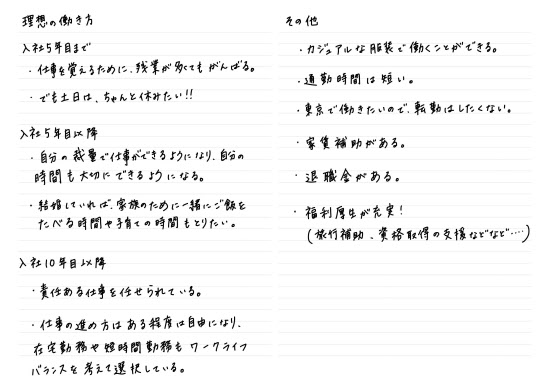 理想の働き方
入社5年目まで
・仕事を覚えるために、残業が多くてもがんばる。
・でも土日は、ちゃんと休みたい!!
入社5年目以降
・自分の裁量で仕事ができるようになり、自分の
時間も大切にできるようになる。
・結婚していれば、家族のために一緒にご飯を
たべる時間や子育ての時間もとりたい。
入社10年目以降
・責任ある仕事を任せられている。
・仕事の進め方はある程度は自由になり、
在宅勤務や短時間勤務もワークライフ
バランスを考えて選択している。
その他
・カジュアルな服装で働くことができる。
・通勤時間は短い。
・東京で働きたいので、転勤はしたくない。
・家賃補助がある。
・退職金がある。
・福利厚生が充実!
(旅行補助、資格取得の支援などなど‥‥)